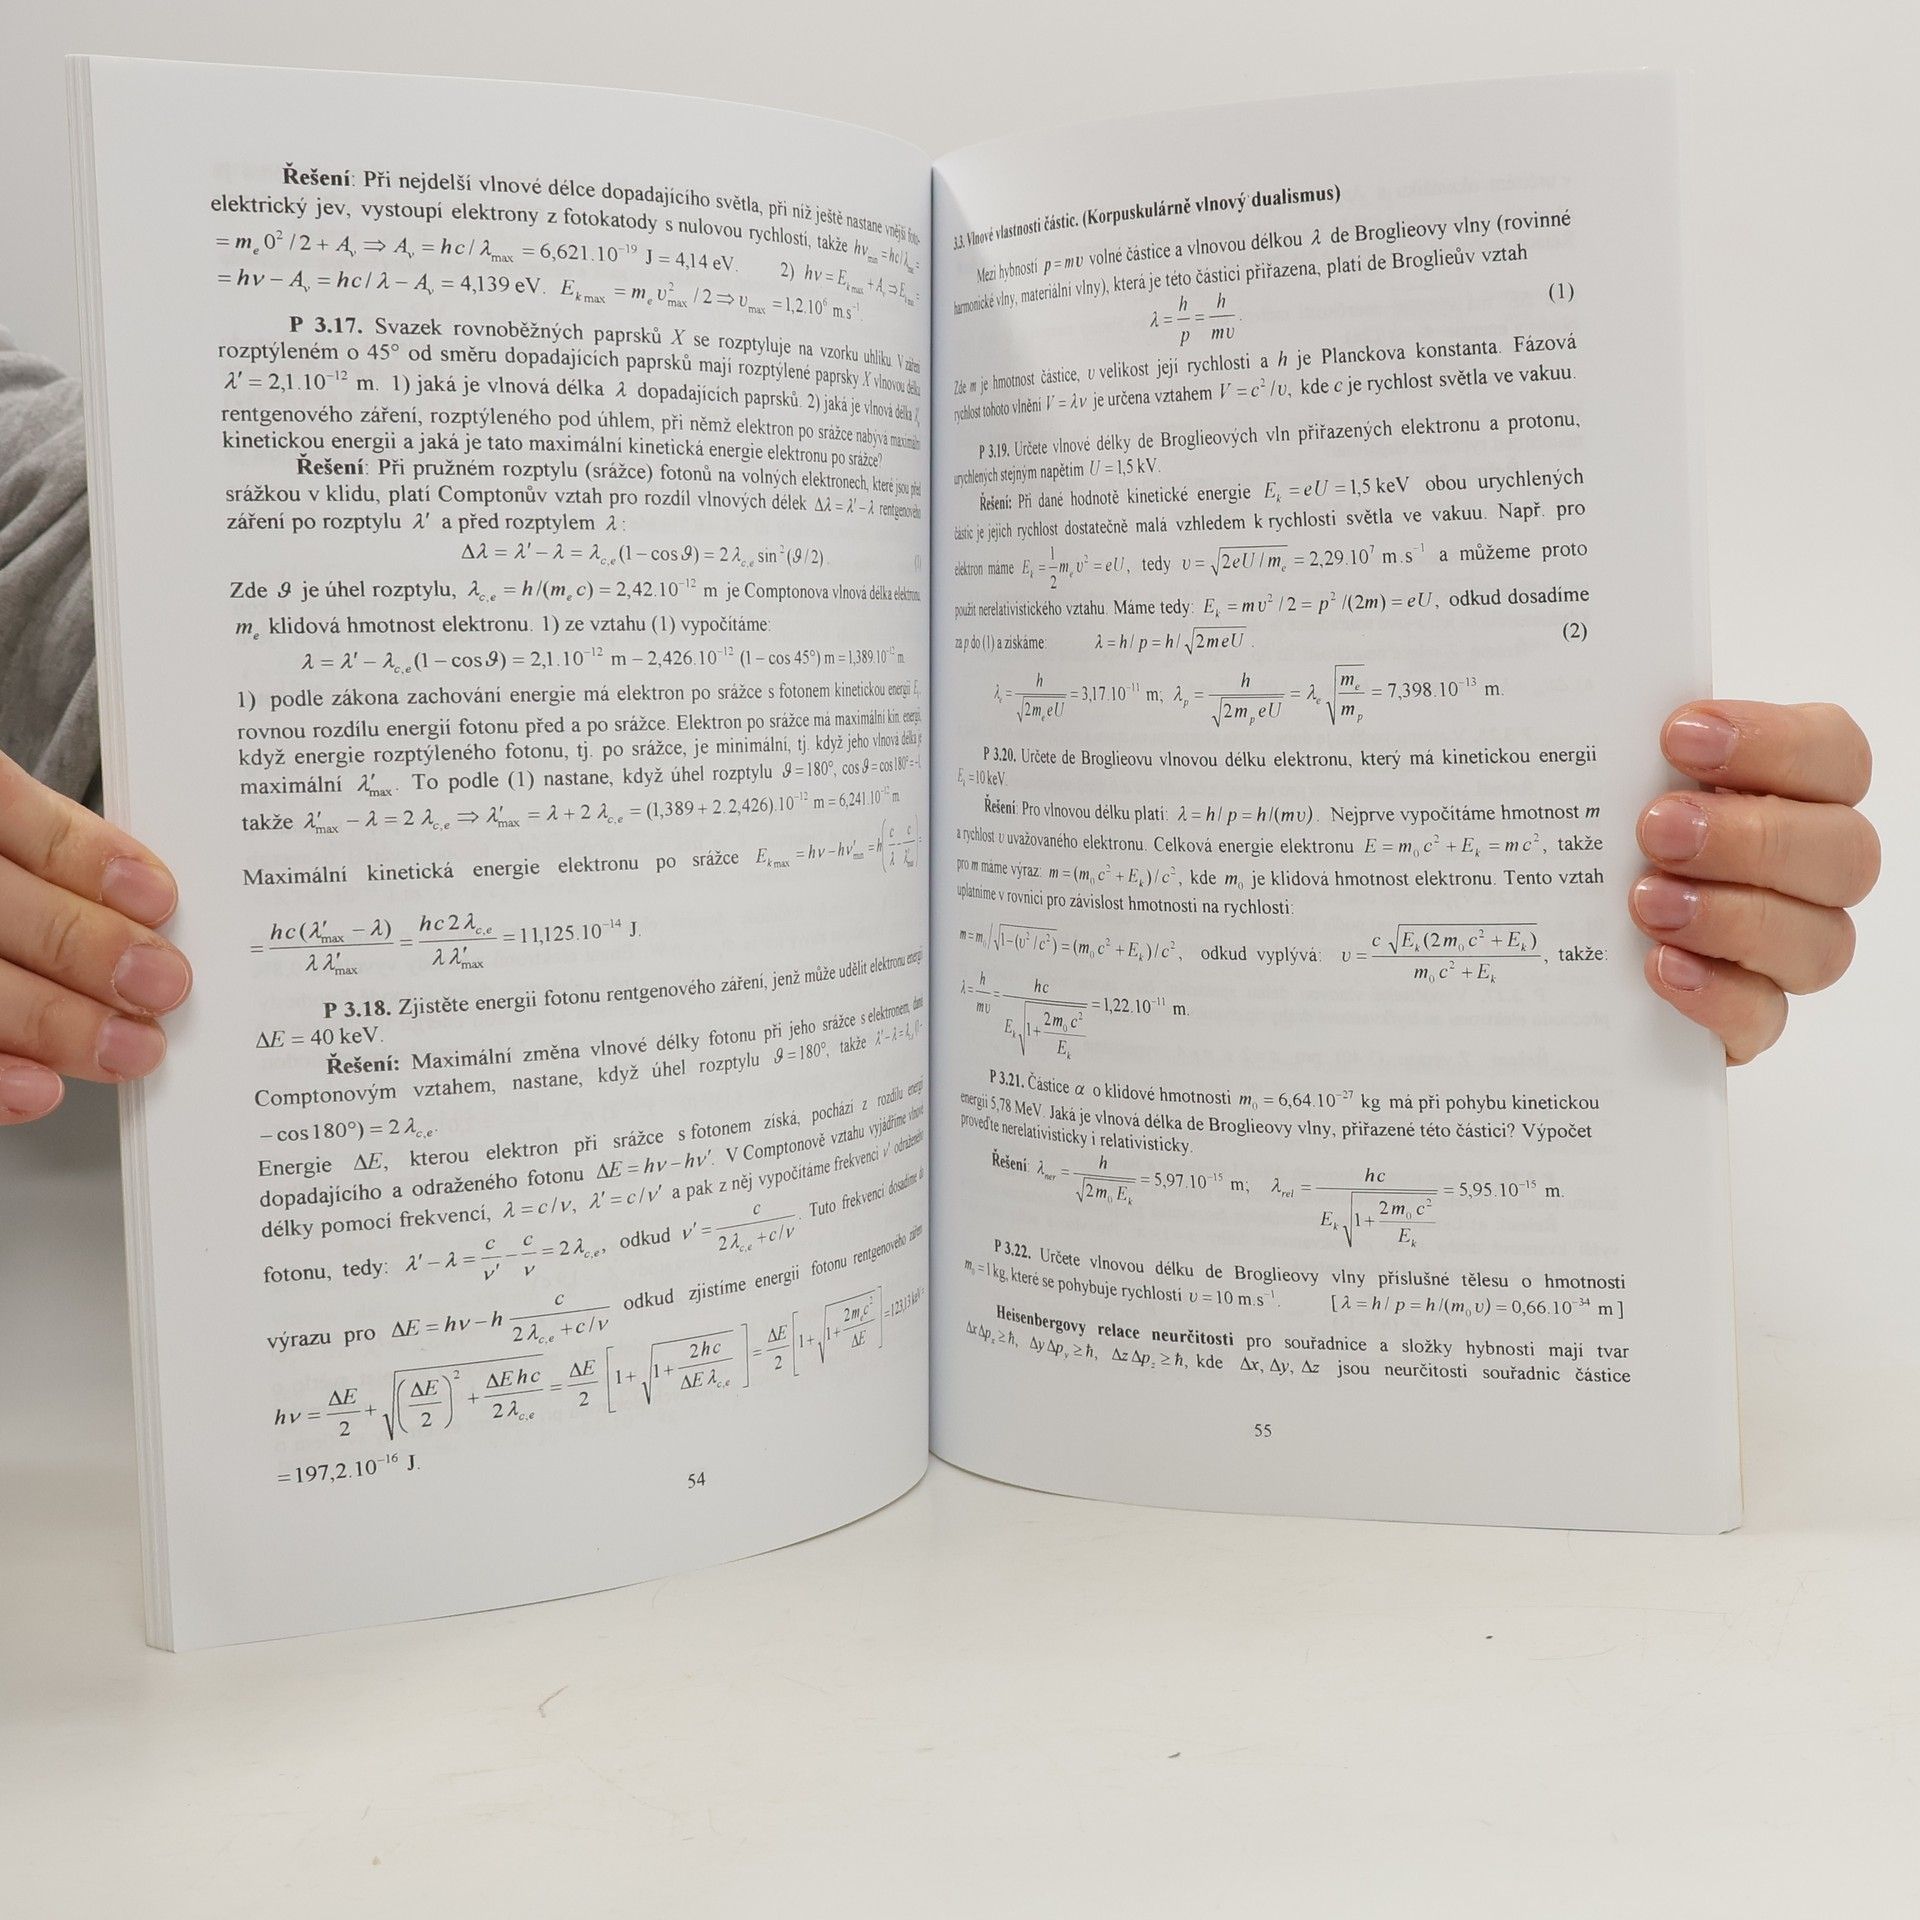 Řešení: Při nejdelší vlnové délce dopadajícího světla, při níž ještě nastane vnější foto-
elektrický jev, vystoupí elektrony z fotokatody s nulovou rychlostí, takže hν_min = hc/λ_max =
= m_e 0² / 2 + A_v ⇒ A_v = hc / λ_max = 6,621.10⁻¹⁹ J = 4,14 eV. 2) hν = E_k max + A_v ⇒ E_k max =
= hν − A_v = hc / λ − A_v = 4,139 eV. E_k max = m_e υ²_max / 2 ⇒ υ_max = 1,2.10⁶ m.s⁻¹.
P 3.17. Svazek rovnoběžných paprsků X se rozptyluje na vzorku uhlíku. V záření
rozptýleném o 45° od směru dopadajících paprsků mají rozptýlené paprsky X vlnovou délku
λ' = 2,1.10⁻¹² m. 1) jaká je vlnová délka λ dopadajících paprsků. 2) jaká je vlnová délka
rentgenového záření, rozptýleného pod úhlem, při němž elektron po srážce nabývá maximální
kinetickou energii a jaká je tato maximální kinetická energie elektronu po srážce?
Řešení: Při pružném rozptylu (srážce) fotonů na volných elektronech, které jsou před
srážkou v klidu, platí Comptonův vztah pro rozdíl vlnových délek Δλ = λ' − λ rentgenového
záření po rozptylu λ' a před rozptylem λ :
Δλ = λ' − λ = λ_c,e (1 − cos ϑ) = 2 λ_c,e sin² (ϑ / 2). (1)
Zde ϑ je úhel rozptylu, λ_c,e = h /(m_e c) = 2,42.10⁻¹² m je Comptonova vlnová délka elektronu,
m_e klidová hmotnost elektronu. 1) ze vztahu (1) vypočítáme:
λ = λ' − λ_c,e (1 − cos ϑ) = 2,1.10⁻¹² m − 2,426.10⁻¹² (1 − cos 45°) m = 1,389.10⁻¹² m.
1) podle zákona zachování energie má elektron po srážce s fotonem kinetickou energii E_k,
rovnou rozdílu energií fotonu před a po srážce. Elektron po srážce má maximální kin. energii,
když energie rozptýleného fotonu, tj. po srážce, je minimální, tj. když jeho vlnová délka je
maximální λ'_max. To podle (1) nastane, když úhel rozptylu ϑ = 180°, cos ϑ = cos 180° = −1,
takže λ'_max − λ = 2 λ_c,e ⇒ λ'_max = λ + 2 λ_c,e = (1,389 + 2.2,426).10⁻¹² m = 6,241.10⁻¹² m.
Maximální kinetická energie elektronu po srážce E_k max = hν − hν'_min = h(c/λ − c/λ'_max) =
= hc (λ'_max − λ) / (λ λ'_max) = hc 2 λ_c,e / (λ λ'_max) = 11,125.10⁻¹⁴ J.
P 3.18. Zjistěte energii fotonu rentgenového záření, jenž může udělit elektronu energii
ΔE = 40 keV.
Řešení: Maximální změna vlnové délky fotonu při jeho srážce s elektronem, daná
Comptonovým vztahem, nastane, když úhel rozptylu ϑ = 180°, takže λ' − λ = λ_c,e (1 −
− cos 180°) = 2 λ_c,e.
Energie ΔE, kterou elektron při srážce s fotonem získá, pochází z rozdílu energií
dopadajícího a odraženého fotonu ΔE = hν − hν'. V Comptonově vztahu vyjádříme vlnové
délky pomocí frekvencí, λ = c / ν, λ' = c / ν' a pak z něj vypočítáme frekvenci ν' odraženého
fotonu, tedy: λ' − λ = c/ν' − c/ν = 2 λ_c,e, odkud ν' = c / (2 λ_c,e + c/ν). Tuto frekvenci dosadíme do
výrazu pro ΔE = hν − h c / (2 λ_c,e + c/ν) odkud zjistíme energii fotonu rentgenového záření
hν = ΔE/2 + √((ΔE/2)² + ΔE hc / (2 λ_c,e)) = ΔE/2 [1 + √(1 + 2 hc / (ΔE λ_c,e))] = ΔE/2 [1 + √(1 + 2 m_e c² / ΔE)] = 123,13 keV =
= 197,2.10⁻¹⁶ J.
54
3.3. Vlnové vlastnosti částic. (Korpuskulárně vlnový dualismus)
Mezi hybností p = mυ volné částice a vlnovou délkou λ de Broglieovy vlny (rovinné
harmonické vlny, materiální vlny), která je této částici přiřazena, platí de Broglieův vztah
λ = h/p = h/(mυ). (1)
Zde m je hmotnost částice, υ velikost její rychlosti a h je Planckova konstanta. Fázová
rychlost tohoto vlnění V = λν je určena vztahem V = c² / υ, kde c je rychlost světla ve vakuu.
P 3.19. Určete vlnové délky de Broglieových vln přiřazených elektronu a protonu,
urychlených stejným napětím U = 1,5 kV.
Řešení: Při dané hodnotě kinetické energie E_k = eU = 1,5 keV obou urychlených
částic je jejich rychlost dostatečně malá vzhledem k rychlosti světla ve vakuu. Např. pro
elektron máme E_k = 1/2 m_e υ² = eU, tedy υ = √(2eU / m_e) = 2,29.10⁷ m.s⁻¹ a můžeme proto
použít nerelativistického vztahu. Máme tedy: E_k = mυ² / 2 = p² /(2m) = eU, odkud dosadíme
za p do (1) a získáme: λ = h / p = h / √(2meU) . (2)
λ_e = h / √(2m_e eU) = 3,17.10⁻¹¹ m; λ_p = h / √(2m_p eU) = λ_e √(m_e / m_p) = 7,398.10⁻¹³ m.
P 3.20. Určete de Broglieovu vlnovou délku elektronu, který má kinetickou energii
E_k = 10 keV.
Řešení: Pro vlnovou délku platí: λ = h / p = h /(mυ). Nejprve vypočítáme hmotnost m
a rychlost υ uvažovaného elektronu. Celková energie elektronu E = m₀ c² + E_k = m c², takže
pro m máme výraz: m = (m₀ c² + E_k) / c², kde m₀ je klidová hmotnost elektronu. Tento vztah
uplatníme v rovnici pro závislost hmotnosti na rychlosti:
m = m₀ / √(1 − (υ² / c²)) = (m₀ c² + E_k) / c², odkud vyplývá: υ = c √(E_k (2 m₀ c² + E_k)) / (m₀ c² + E_k), takže:
λ = h/(mυ) = hc / (E_k √(1 + 2 m₀ c² / E_k)) = 1,22.10⁻¹¹ m.
P 3.21. Částice α o klidové hmotnosti m₀ = 6,64.10⁻²⁷ kg má při pohybu kinetickou
energii 5,78 MeV. Jaká je vlnová délka de Broglieovy vlny, přiřazené této částici? Výpočet
proveďte nerelativisticky i relativisticky.
Řešení: λ_ner = h / √(2 m₀ E_k) = 5,97.10⁻¹⁵ m; λ_rel = hc / (E_k √(1 + 2 m₀ c² / E_k)) = 5,95.10⁻¹⁵ m.
P 3.22. Určete vlnovou délku de Broglieovy vlny příslušné tělesu o hmotnosti
m₀ = 1 kg, které se pohybuje rychlostí υ = 10 m.s⁻¹. [ λ = h / p = h /(m₀ υ) = 0,66.10⁻³⁴ m ]
Heisenbergovy relace neurčitosti pro souřadnice a složky hybnosti mají tvar
Δx Δp_x ≥ ħ, Δy Δp_y ≥ ħ, Δz Δp_z ≥ ħ, kde Δx, Δy, Δz jsou neurčitosti souřadnic částice
55